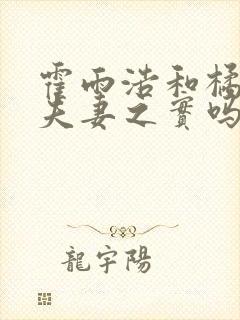 霍雨浩和橘
夫妻之實嗎
龍宇陽